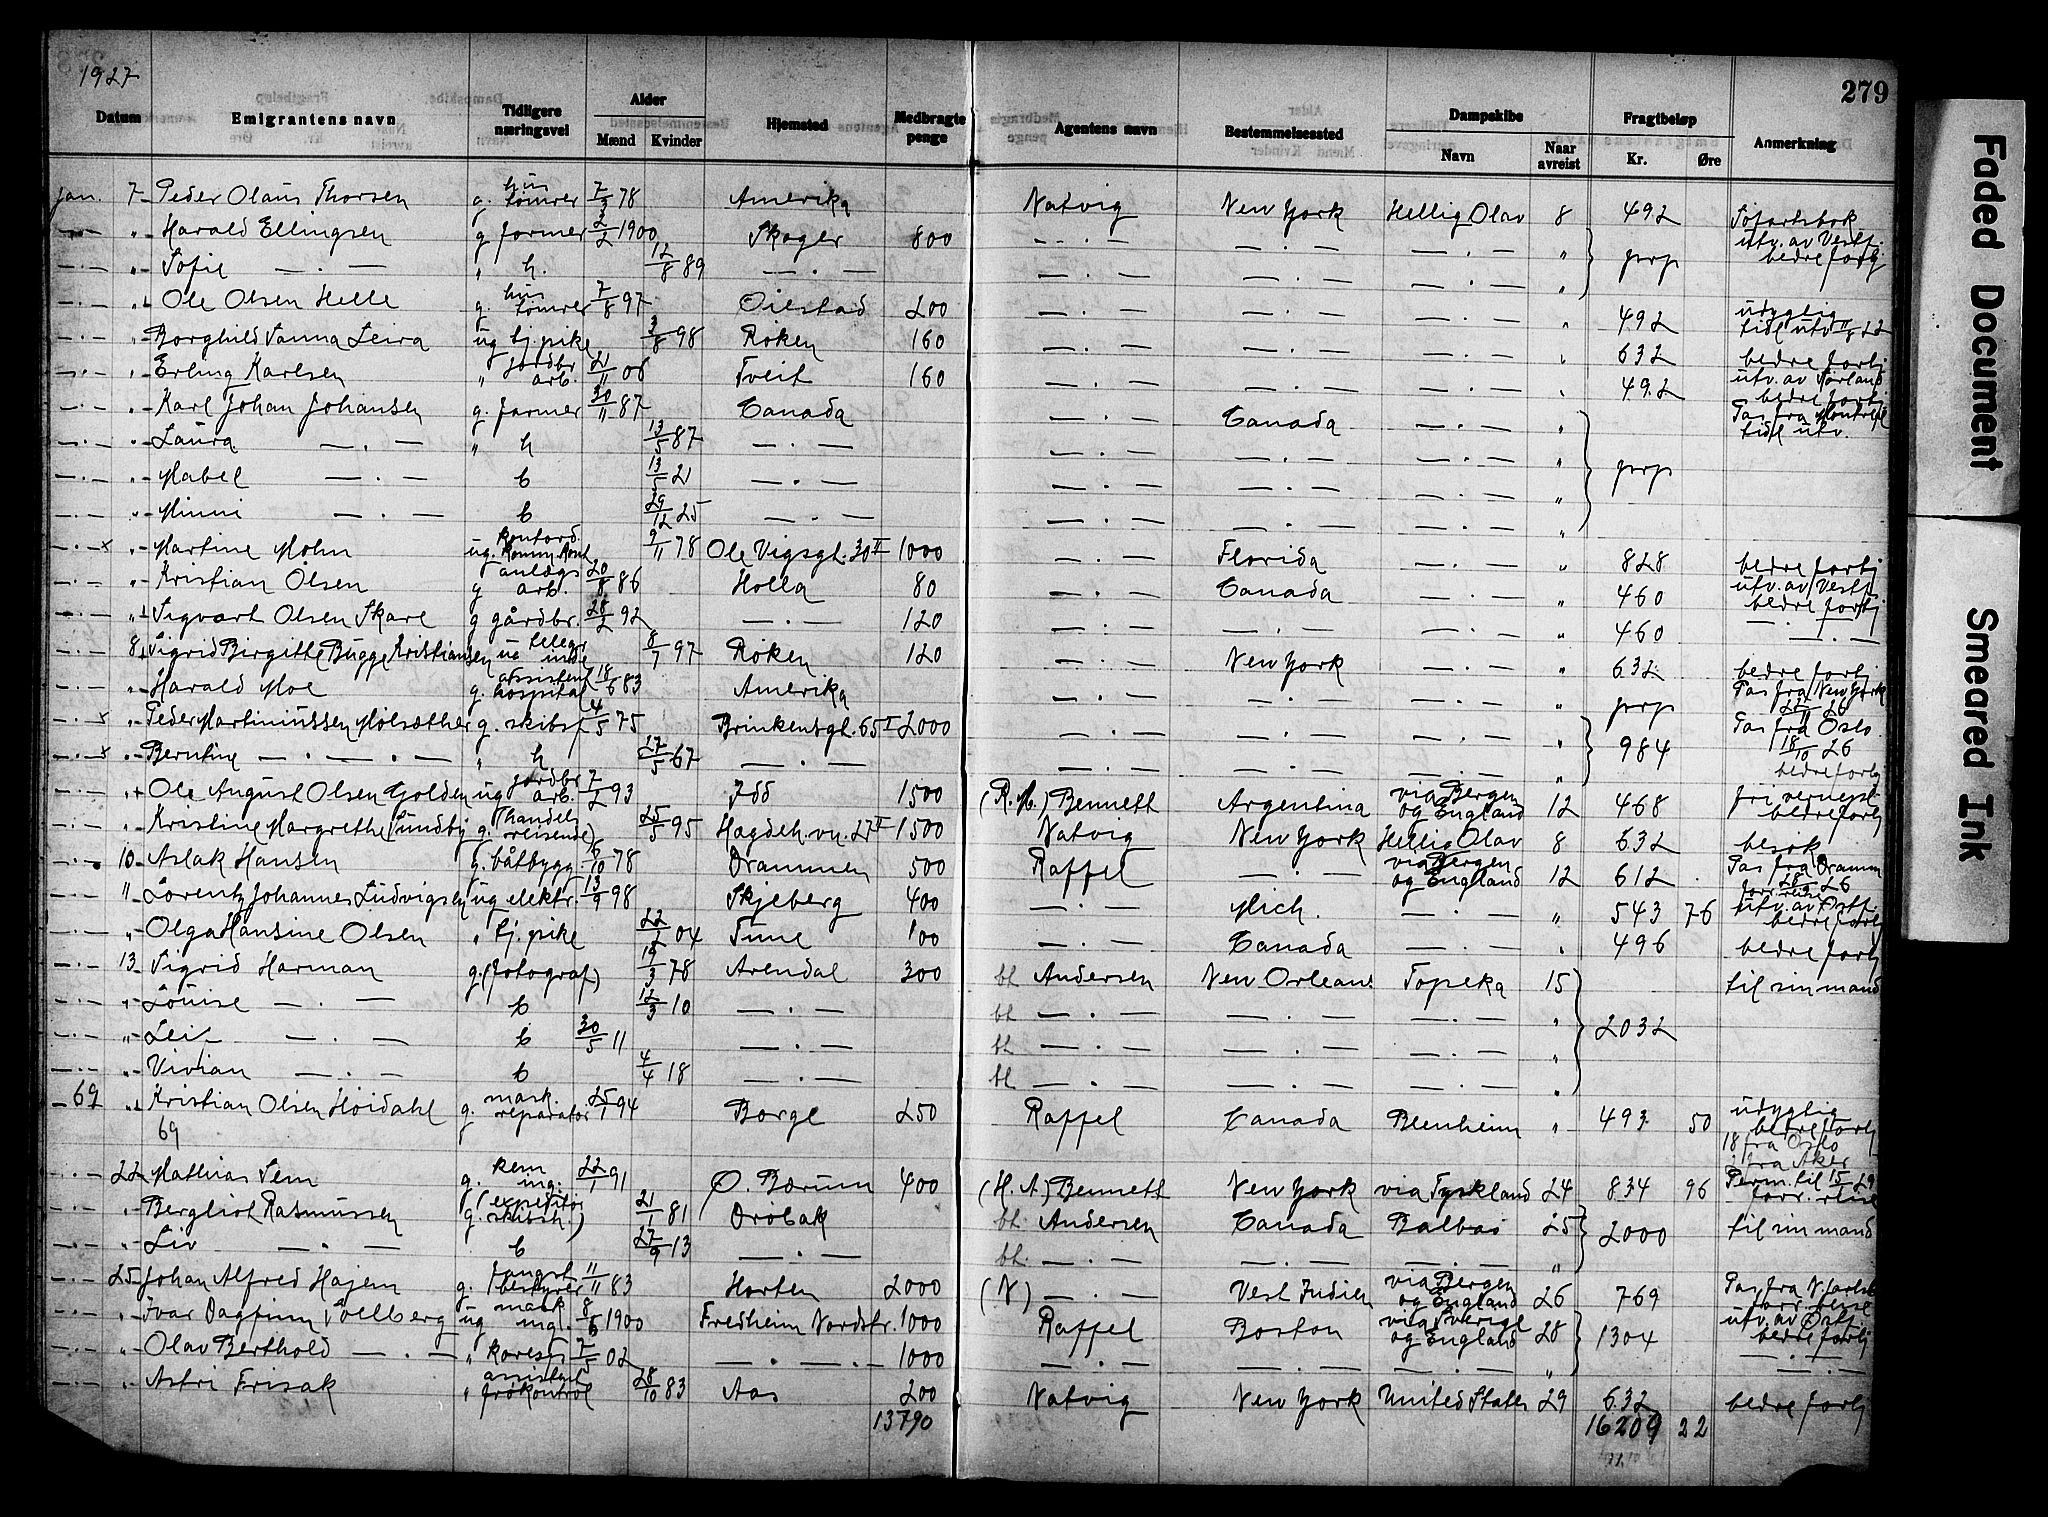 1927
279
Datum | Emigrantens navn | Tidligere næringsvei | Alder Mænd Kvinder | Hjemsted | Medbragte penge | Agentens navn | Bestemmelsessted | Dampskibe Navn Naar avreist | Fragtbeløp Kr. Øre | Anmerkning
Jan. 7 Peder Olaus Thorsen g. hus tømrer 7/3 78 Amerika Natvig New York Hellig Olav 8 492
" Harald Ellingsen g farmer 1900 Skoger 800 — . — — . — — . — " prp utv. av Vestf. bedre fortj
" Sofie — . — " h. 12/8 89 — . — — . — — . — — . — "
" Ole Olsen Helle g. hus tømrer 7/8 97 Oiestad 200 — . — — . — — . — " 492 udygtig
" Borghild Sanna Leira ug tj. pike 3/8 98 Røken 160 — . — — . — — . — " 632 bedre fortj
" Erling Karlsen " jordbr arb. 21/11 06 Tveit 160 — . — — . — — . — " 492 utv. av Sørland bedre fortj
" Karl Johan Johansen g. farmer 30/11 87 Canada — . — Canada — . — " prp Pas fra Montreal tidl utv.
" Laura — . — " h 13/5 87 — . — — . — — . — — . — "
" Mabel — . — b 13/5 21 — . — — . — — . — — . — "
" Minni — . — b 29/12 25 — . — — . — — . — — . — "
x " Martine Mohn ug. kontord. 9/11 78 Ole Vigsgt. 30 II 1000 — . — Florida — . — " 828 bedre fortj
" Kristian Olsen g anlægs arb. 20/8 86 Holla 80 — . — Canada — . — " 460 utv. av Vestf. bedre fortj
" Sigvart Olsen Skare g gårdbr. 28/2 92 — . — 120 — . — — . — — . — " 460 — . —
8 Sigrid Birgithe Bugge Kristiansen ug 8/7 97 Røken 120 — . — New York — . — " 632 bedre fortj
" Harald Moe g. assistent hospital 18/6 83 Amerika — . — — . — — . — " prp Pas fra New York
x " Peder Martiniussen Molsæther g. skibsf 4/5 75 Brinkensgt. 65 I 2000 — . — — . — — . — " 984 Pas fra Oslo 18/10 26 bedre fortj
x " Berntine — . — . — " h 27/5 67 — . — — . — — . — — . — "
" Ole August Olsen Golden ug jordbr arb. 7/2 93 Idd 1500 (R. M.) Bennett Argentina via Bergen og England 12 468 bedre fortj
" Kristine Margrethe Sundby g. (handels reisende) 25/5 95 Hægdeh. vn. 27 II 1500 Natvig New York Hellig Olav 8 632 besøk
10 Aslak Hansen g. båtbygg. 6/10 78 Drammen 500 Raffel — . — via Bergen og England 12 612 Pas fra Dramm
" Lorentz Johannes Ludvigsen ug elektr. 13/9 98 Skjeberg 400 — . — Mich. — . — " 543 76 utv. av Østf. bedre fortj
" Olga Hansine Olsen " tj. pike 04 Tune 100 — . — Canada — . — " 496 bedre fortj
13 Sigrid Harman g. (fotograf) 19/3 78 Arendal 300 bl Andersen New Orleans Topeka 15 2032 til sin mand
" Louise — . — b 12/3 10 — . — bl — . — — . — — . — "
" Leif — . — b 30/5 11 — . — bl — . — — . — — . — "
" Vivian — . — b 4/4 18 — . — bl — . — — . — — . — "
69 " Kristian Olsen Høidahl g. mask. reparatør 25/1 94 Borge 250 Raffel Canada Blenheim " 493 50 udygtig bedre fortj
69 18 fra Oslo
1 fra Aker
22 Mathias Sem g. kem ing. 22/1 91 Ø. Bærum 400 (H. A.) Bennett New York via Tyskland 24 834 96 Perm. til 15/ 29 forr. reise
" Bergliot Rasmussen g. (expeditør skibsh.) 21/1 81 Drøbak bl. Andersen Canada Balbao 25 2000 til sin mand
" Liv — . — b 27/9 13 — . — bl. — . — "
25 Johan Alfred Hajem g. fangst bestyrer 11/11 83 Horten 2000 (N) — . — Vest Indien via Bergen og England 26 769 forr. reise
" Ivar Dagfinn Solberg ug mask ing. 1900 Fredheim Nordstr. 1000 Raffel Boston via Sverige og England 28 1304 utv. av Østf. bedre fortj
" Olav Berthold — . — " 7/5 02 — . — . — 1000 — . — — . — — . — " — . —
" Astri Frisak " assistent frøkontrol 28/10 83 Aas 200 Natvig New York United States 29 632 bedre fortj
13790 16209 22
Faded Document
Smeared Ink